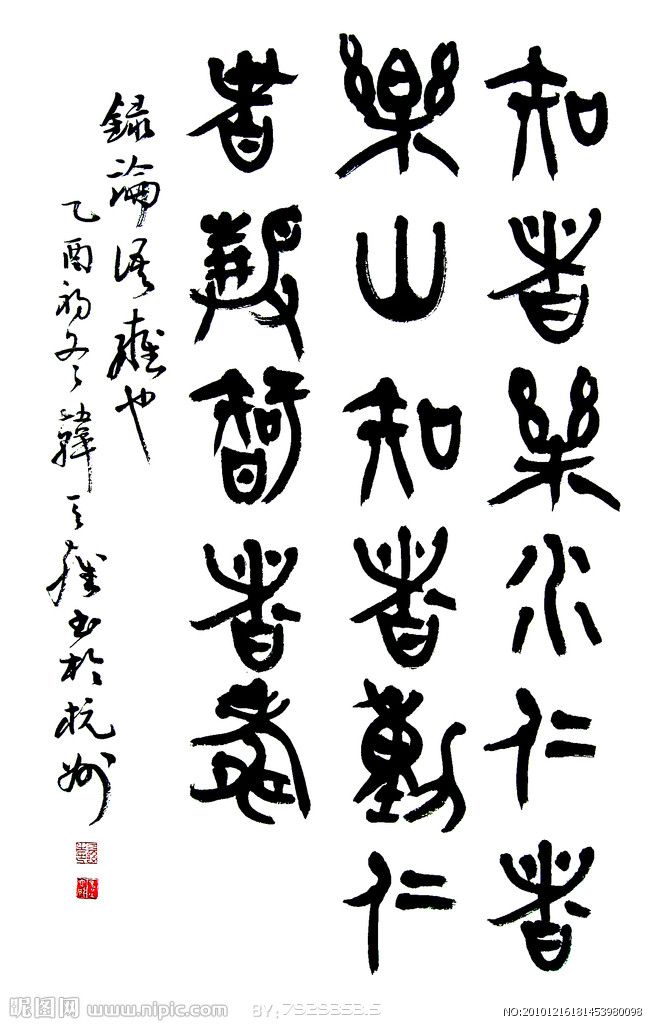 知者樂水仁者
樂山知者動仁
者靜智者壽
錄論語雍也
乙酉初冬韓天雍書於杭州
昵图网 www.nipic.com
BY:7929353.5
NO:20101216181453980098